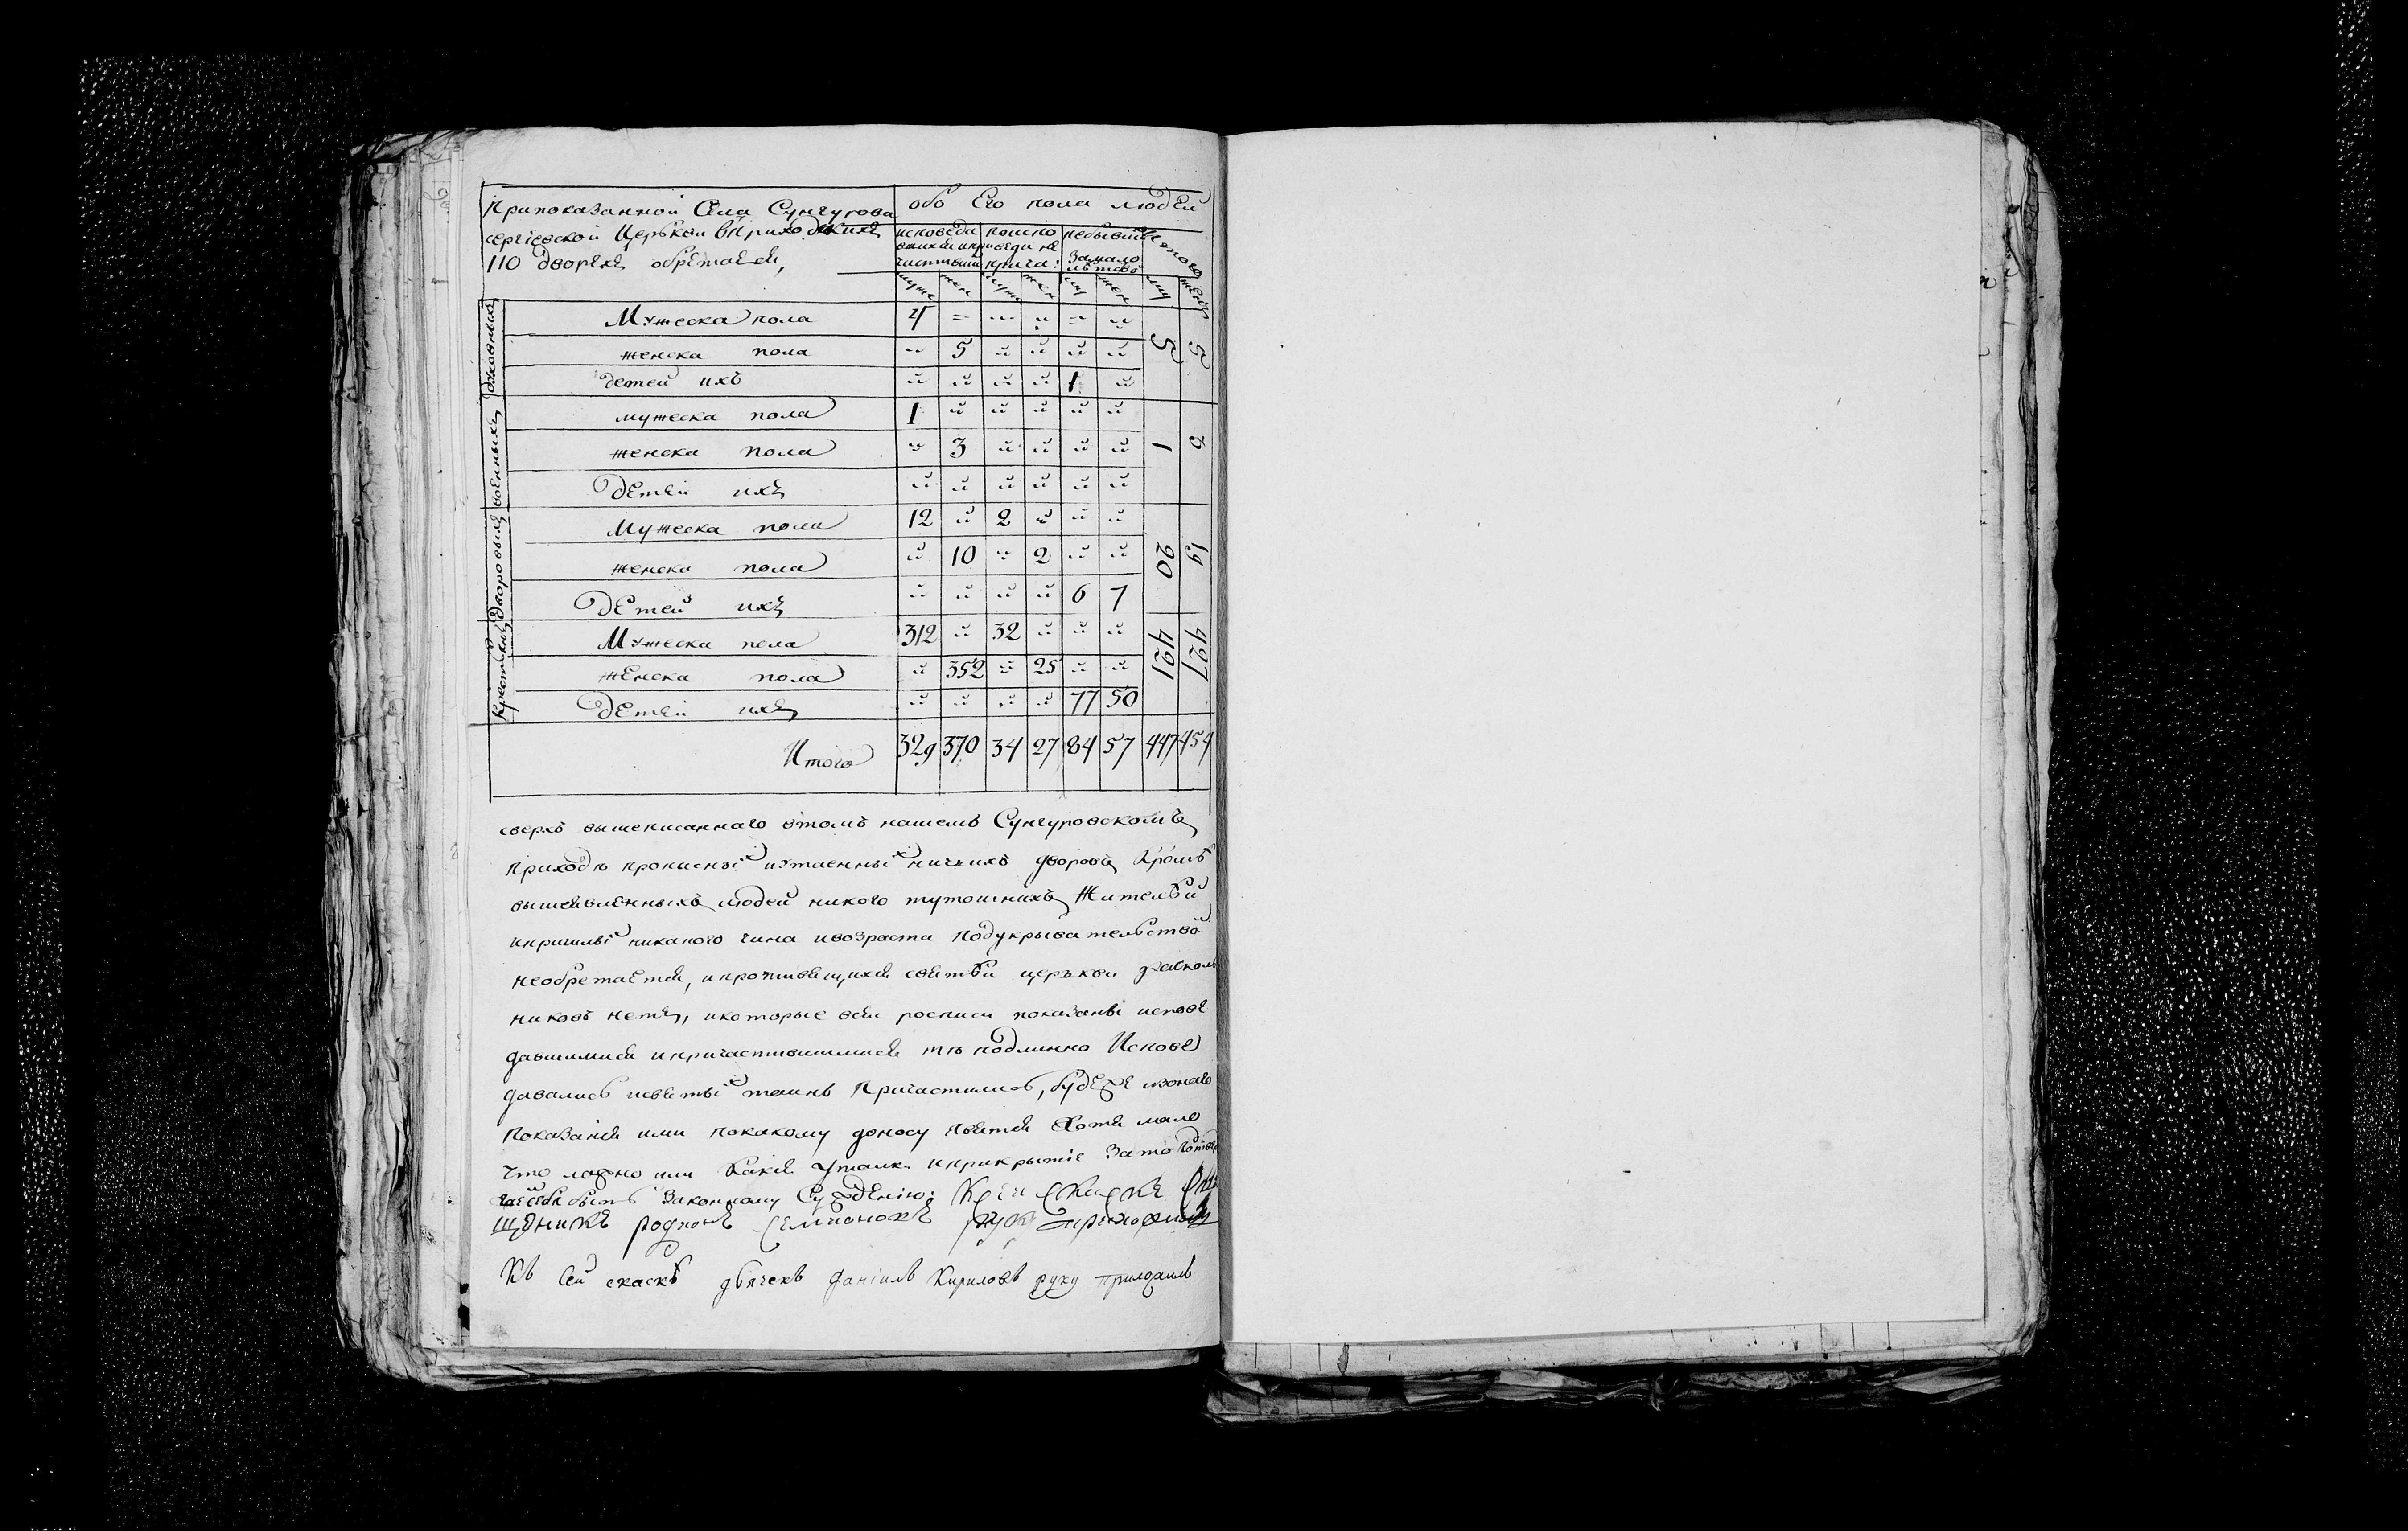 Припоказанной Села Сунгурова
сергіевской Церькви вприходскихъ
110 дворехъ обретаетця,
обо Его пола людей
исповеди поиспо небывши Всего
вшихся ипри веди не за мало
частивши прича: летсво
муже жен муже жен му жен му женъ
Духовныхъ
Мужеска пола 4 5 5
женска пола 5
детей ихъ 1
военныхъ
мужеска пола 1 1 3
женска пола 3
Детей ихъ
Дворовыхъ
Мужеска пола 12 2 20 19
женска пола 10 2
Детей ихъ 6 7
Крестьянъ
Мужеска пола 312 32 421 427
женска пола 352 25
Детей ихъ 77 50
Итого 329 370 34 27 84 57 447 454
сверхъ вышеписаннаго втомъ нашемъ Сунгуровскомъ
приходѣ прописныхъ иутаенныхъ ничьихъ дворовъ Кромѣ
вышеявленныхъ людей никого тутошнихъ Жителѣй
ипришлыхъ никакого чина ивозраста подукрывательствомъ
необретаетця, ипротивящихся святѣй церькви расколь
никовъ нетъ, икоторые всей росписи показаны испове
давшимися ипричаствившимися тѣ подлинно Испове
давались исвятыхъ таинъ Причастились, будеже изонаго
показания или покакому доносу явитця Хотя мало
что ложно или какая утаика иприкрытіе зато
себя быть законному Сужденію: Ксеи скаске свя
щенникъ родионъ семионовъ руку приложилъ
Къ сей скаскѣ дьячекъ Даніилъ Кириловъ руку приложилъ